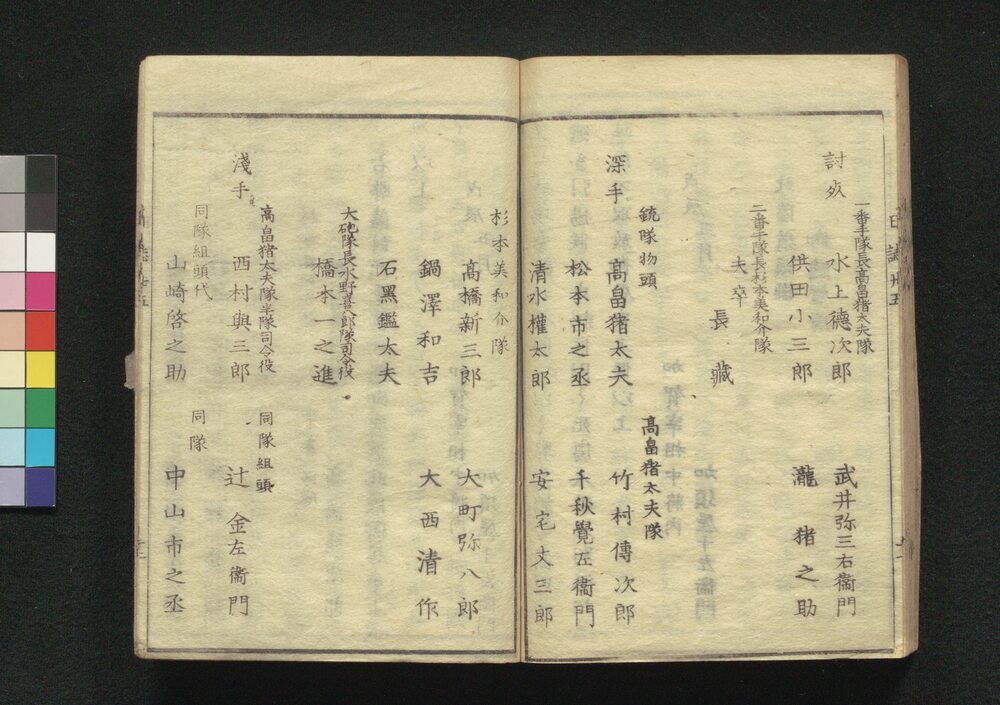 討死
一番手隊長高畠猪太夫隊
水上德次郎
武井弥三右衞門
供田小三郎
瀧猪之助
二番手隊長杉本美和介隊
夫卒
長藏
深手
銃隊物頭
高畠猪太夫
高畠猪太夫隊
竹村傳次郎
松本市之丞
千秋覺左衞門
清水權太郎
安宅丈三郎
杉本美和介隊
高橋新三郎
大町弥八郎
鍋澤和吉
大西清作
石黑鑑太夫
大砲隊長水野喜八郎隊司令役
橋本一之進
淺手
高畠猪太夫隊半隊司令役
西村與三郎
同隊組頭
辻金左衞門
同隊組頭代
山崎啓之助
同隊
中山市之丞